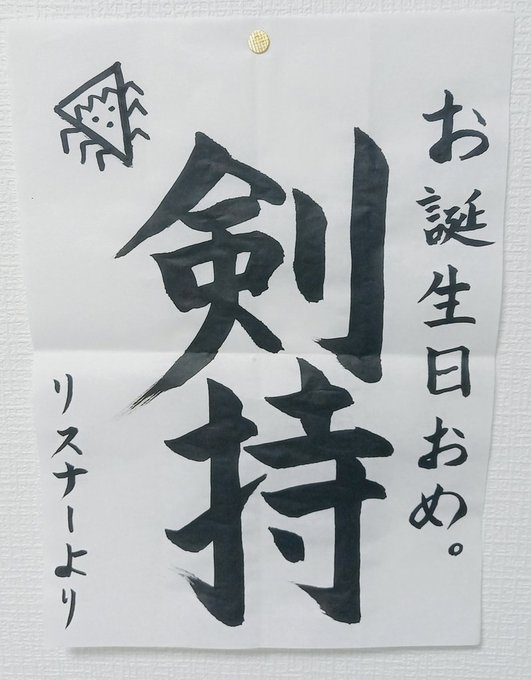 お誕生日おめ。
剣持
リスナーより